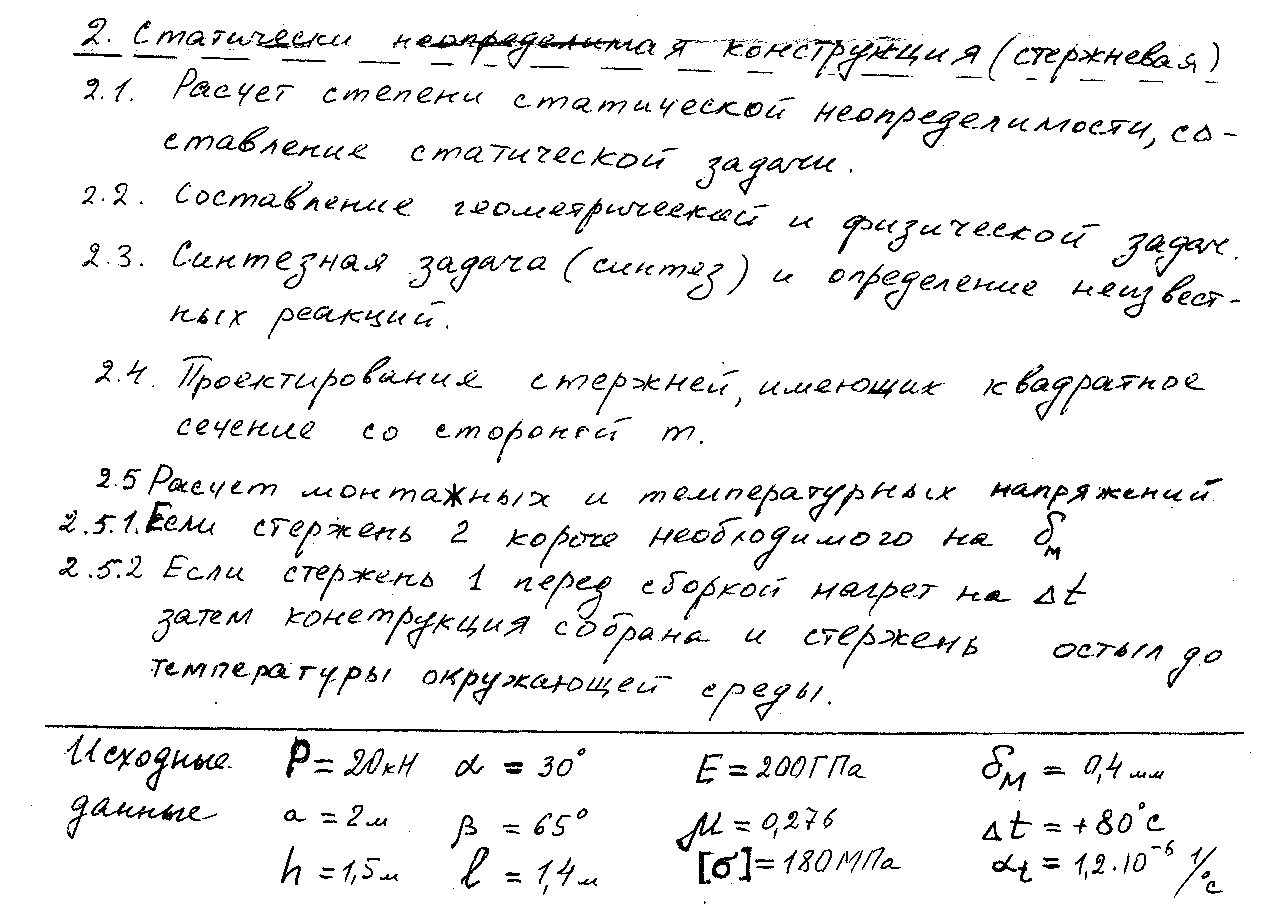 2. Статически неопределимая конструкция (стержневая)
2.1. Расчет степени статической неопределимости, со-
ставление статической задачи.
2.2. Составление геометрической и физической задач.
2.3. Синтезная задача (синтез) и определение неизвест-
ных реакций.
2.4. Проектирования стержней, имеющих квадратное
сечение со стороной m.
2.5 Расчет монтажных и температурных напряжений
2.5.1. Если стержень 2 короче необходимого на δм
2.5.2 Если стержень 1 перед сборкой нагрет на Δt
затем конструкция собрана и стержень остыл до
температуры окружающей среды.
Исходные P = 20кН α = 30° E = 200ГПа δм = 0,4 мм
данные a = 2м β = 65° μ = 0,276 Δt = +80°С
h = 1,5м l = 1,4м [σ] = 180МПа αt = 1,2·10⁻⁶ 1/°С